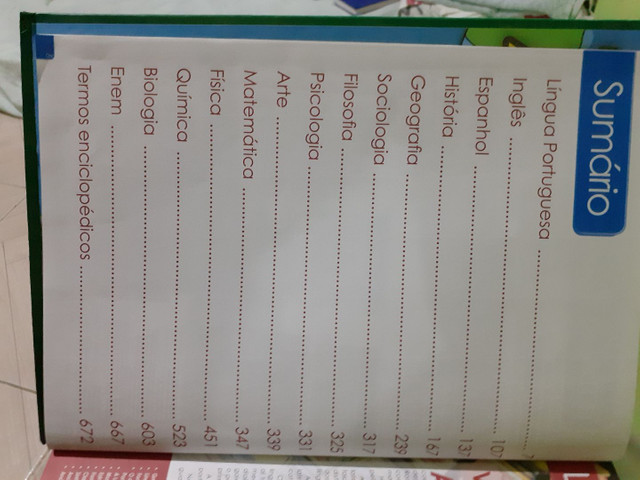 Sumário
Língua Portuguesa ........................................ 7
Inglês ........................................ 107
Espanhol ........................................ 137
História ........................................ 167
Geografia ........................................ 239
Sociologia ........................................ 317
Filosofia ........................................ 325
Psicologia ........................................ 331
Arte ........................................ 339
Matemática ........................................ 347
Física ........................................ 451
Química ........................................ 523
Biologia ........................................ 603
Enem ........................................ 667
Termos enciclopédicos ........................................ 672